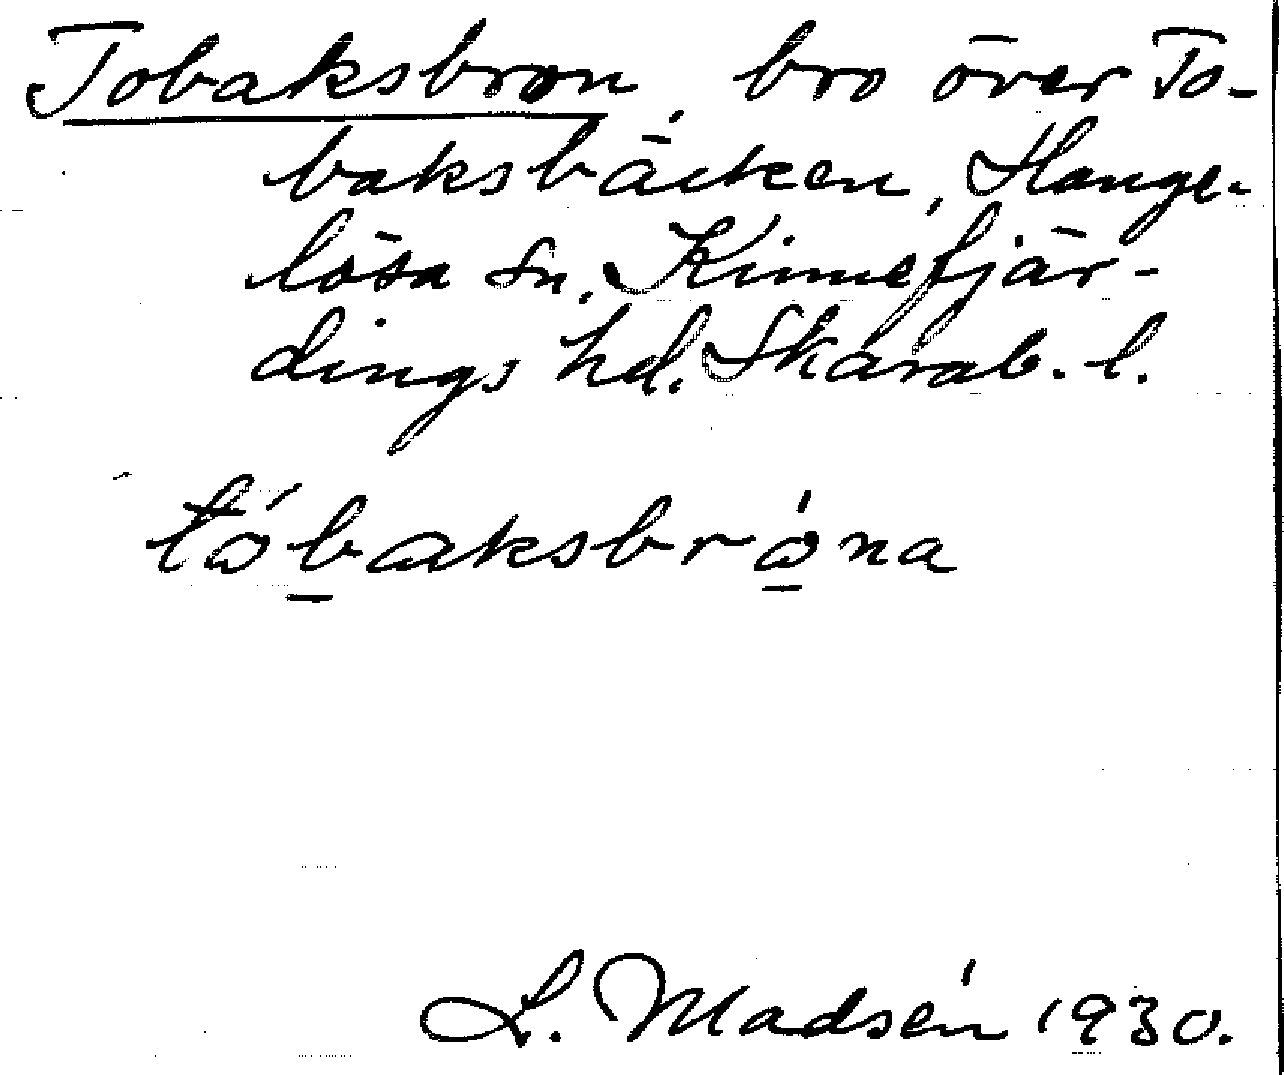 Tobaksbron, bro över To-
baksbäcken, Hange-
lösa sn, Kinnefjär-
dings hd. Skarab. l.
tóbaksbróna
L. Madsén 1930.